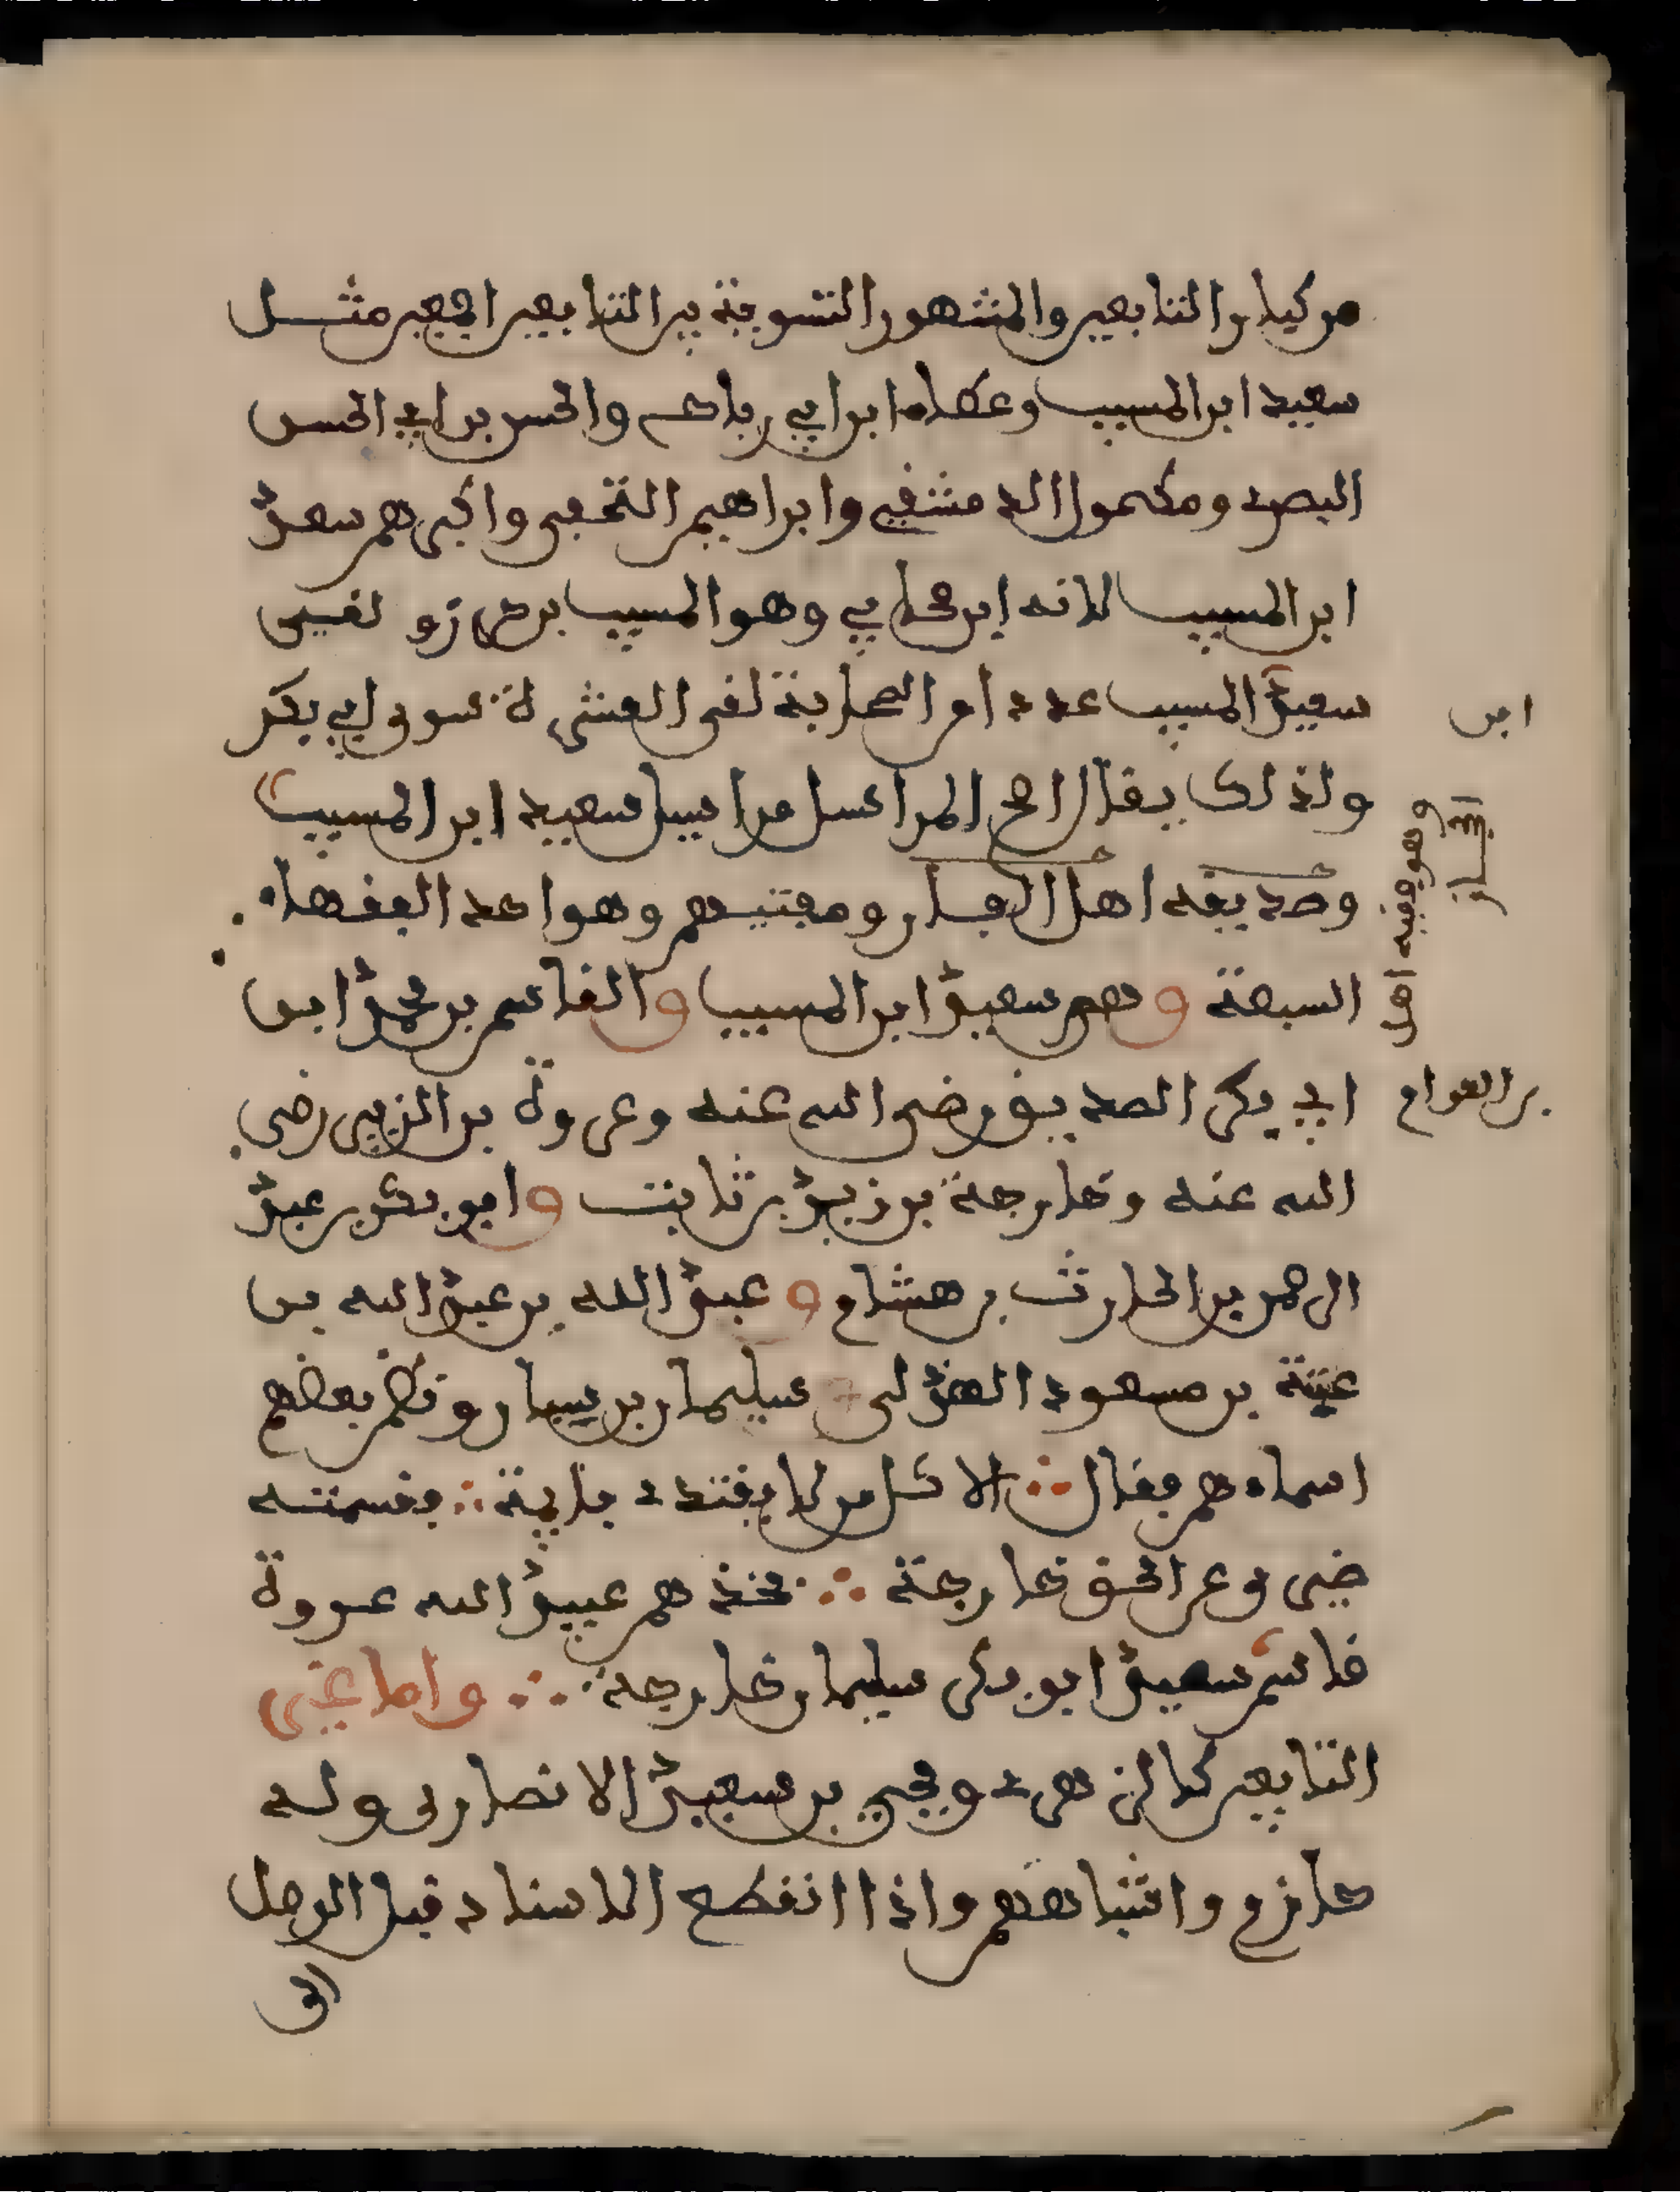 من كبار التابعين والمشهور التسوية بين التابعين اجمعين مثل
سعيد ابن المسيب وعطاء ابن ابي رباح والحسن بن ابي الحسن
البصري ومكحول الدمشقي وابراهيم النخعي واكبرهم سعيد
ابن المسيب لانه ابن صحابي وهو المسيب بن حزن ولقي
سعيد المسيب عددا من الصحابة لقي العشرة سوى ابي بكر
ابن
ولذلك يقال اصح المراسل مراسيل سعيد ابن المسيب
وصديقه اهل الحجاز ومفتيهم وهو احد الفقهاء
وهو فقيه اهل
الحجاز
السبعة وهم سعيد ابن المسيب والقاسم بن محمد ابن
ابي بكر الصديق رضي الله عنه وعروة بن الزبير رضي
بن العوام
الله عنه وخارجة بن زيد بن ثابت وابو بكر بن عبد
الرحمن بن الحارث بن هشام وعبيد الله بن عبد الله بن
عتبة بن مسعود الهذلي سليمان بن يسار ونظم بعضهم
اسماءهم فقال ∴ الا كل من لا يقتدي بايمة ∴ فقسمته
ضيزى عن الحق خارجة ∴ فخذهم عبيد الله عروة
قاسم سعيد ابو بكر سليمان خارجة ∴ واما غير
التابعين كالزهري ويحيى بن سعيد الانصاري وله
حازم واشباههم واذا انقطع الاسناد قبل الوصل
الى